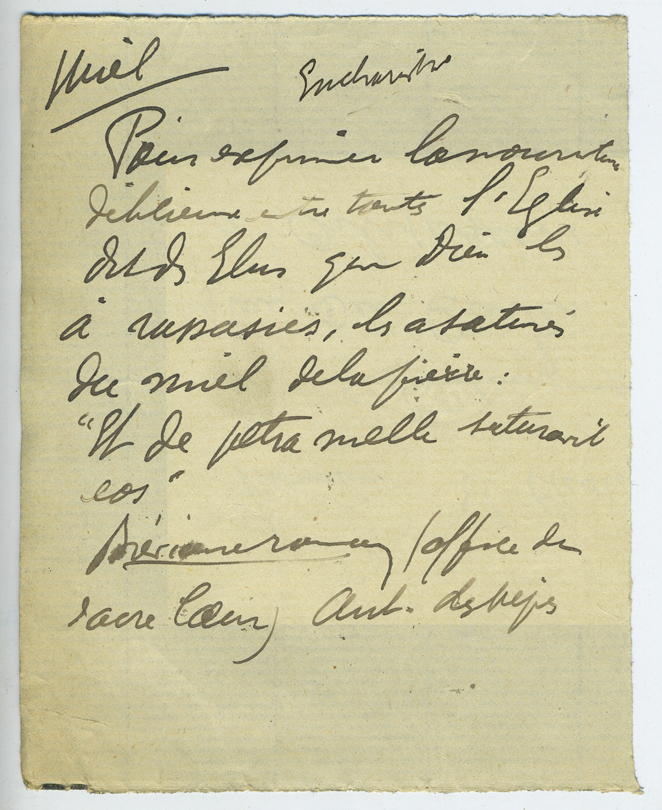 Miel
Eucharistie
Pour exprimer la nourriture
délicieuse entre toutes l'Eglise
dit des Elus que Dieu les
a rassasiés, les a saturés
du miel de la pierre :
"Et de petra melle saturavit
eos"
Bréviaire romain (office du
sacré Coeur) Ant. des vêpres